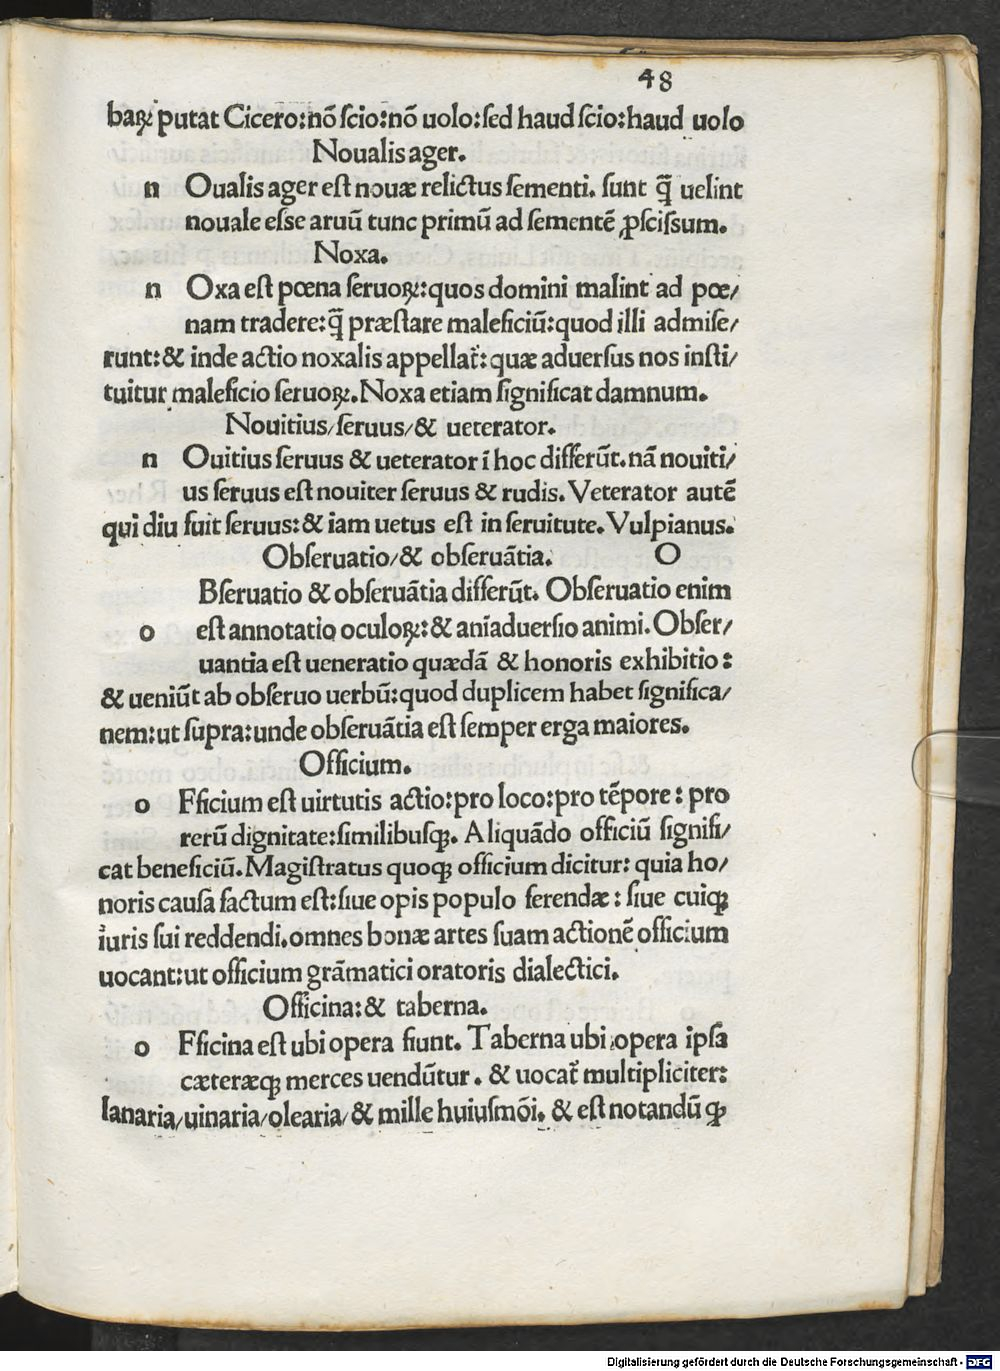 48
baꝝ putat Cicero:nõ ſcio:nõ uolo:ſed haud ſcio:haud uolo
Noualis ager.
n Oualis ager eſt nouæ relictus ſementi. ſunt q̃ uelint
nouale eſſe aruũ tunc primũ ad ſementẽ ꝓſciſſum.
Noxa.
n Oxa eſt pœna ſeruoꝝ:quos domini malint ad pœ/
nam tradere:q̃ præſtare maleficiũ:quod illi admiſe/
runt:& inde actio noxalis appellat̃:quæ aduerſus nos inſti/
tuitur maleficio ſeruoꝝ.Noxa etiam ſignificat damnum.
Nouitius/ſeruus/& ueterator.
n Ouitius ſeruus & ueterator ĩ hoc differũt.nã nouiti/
us ſeruus eſt nouiter ſeruus & rudis. Veterator autẽ
qui diu fuit ſeruus:& iam uetus eſt in ſeruitute. Vulpianus.
Obſeruatio/& obſeruãtia. O
Bſeruatio & obſeruãtia differũt. Obſeruatio enim
o eſt annotatio oculoꝝ:& aniaduerſio animi. Obſer/
uantia eſt ueneratio quædã & honoris exhibitio:
& ueniũt ab obſeruo uerbũ:quod duplicem habet ſignifica/
nem:ut ſupra:unde obſeruãtia eſt ſemper erga maiores.
Officium.
o Fficium eſt uirtutis actio:pro loco:pro tẽpore: pro
rerũ dignitate:ſimilibuſqꝫ. Aliquãdo officiũ ſignifi/
cat beneficiũ.Magiſtratus quoqꝫ officium dicitur: quia ho/
noris cauſa factum eſt:ſiue opis populo ferendæ: ſiue cuiqꝫ
iuris ſui reddendi.omnes bonæ artes ſuam actionẽ officium
uocant:ut officium grãmatici oratoris dialectici.
Officina:& taberna.
o Fficina eſt ubi opera fiunt. Taberna ubi opera ipſa
cæteræqꝫ merces uendũtur. & uocat̃ multipliciter:
lanaria/uinaria/olearia/& mille huiuſmõi. & eſt notandũ ꝙ
Digitalisierung gefördert durch die Deutsche Forschungsgemeinschaft - DFG